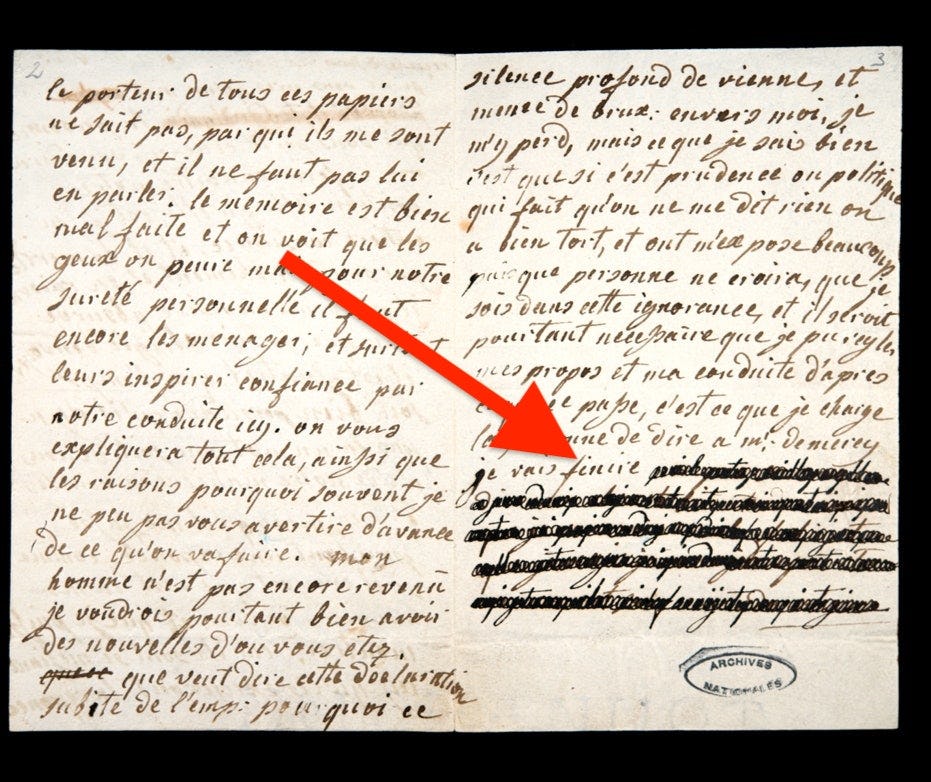 2
le porteur de tous ces papiers
ne sait pas, par qui ils me sont
venu, et il ne faut pas lui
en parler. le memoire est bien
mal faite et on voit que les
geux on peure mais pour notre
sureté personnelle il faut
encore les menager, et surtout
leurs inspirer confiance par
notre conduite icy. on vous
expliquera tout cela, ainssi que
les raisons pourquoi souvent je
ne peu pas vous avertire d'avance
de ce qu'on va faire. mon
homme n'est pas encore revenu
je voudrois pourtant bien avoir
des nouvelles d'ou vous etez.
que veut dire cette declaration
subite de l'emp: pourquoi ce
3
silence profond de vienne, et
meme de brux: envers moi, je
m'y perd, mais ce que je sais bien
c'est que si c'est prudence ou politique
qui fait qu'on ne me dit rien on
a bien tort, et ont m'expose beaucoup
puisque personne ne croira, que je
sois dans cette ignorance, et il seroit
pourtant necessaire que je pu regler
mes propos et ma conduite d'apres
ce passe, c'est ce que je charge
de dire a mr. de mercy
je vais finire
ARCHIVES
NATIONALES